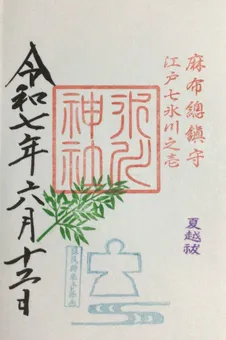 麻布總鎮守
江戸七氷川之壱
夏越祓
氷川
神社
令和七年六月十二日